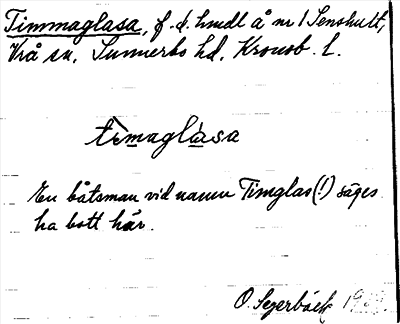 Timmaglasa, f.d. hmdl å nr 1 Senshult,
Vrå sn, Sunnerbo hd, Kronob. l.
timaglasa
En båtsman vid namn Timglas (!) säges
ha bott här.
O. Segerbäck